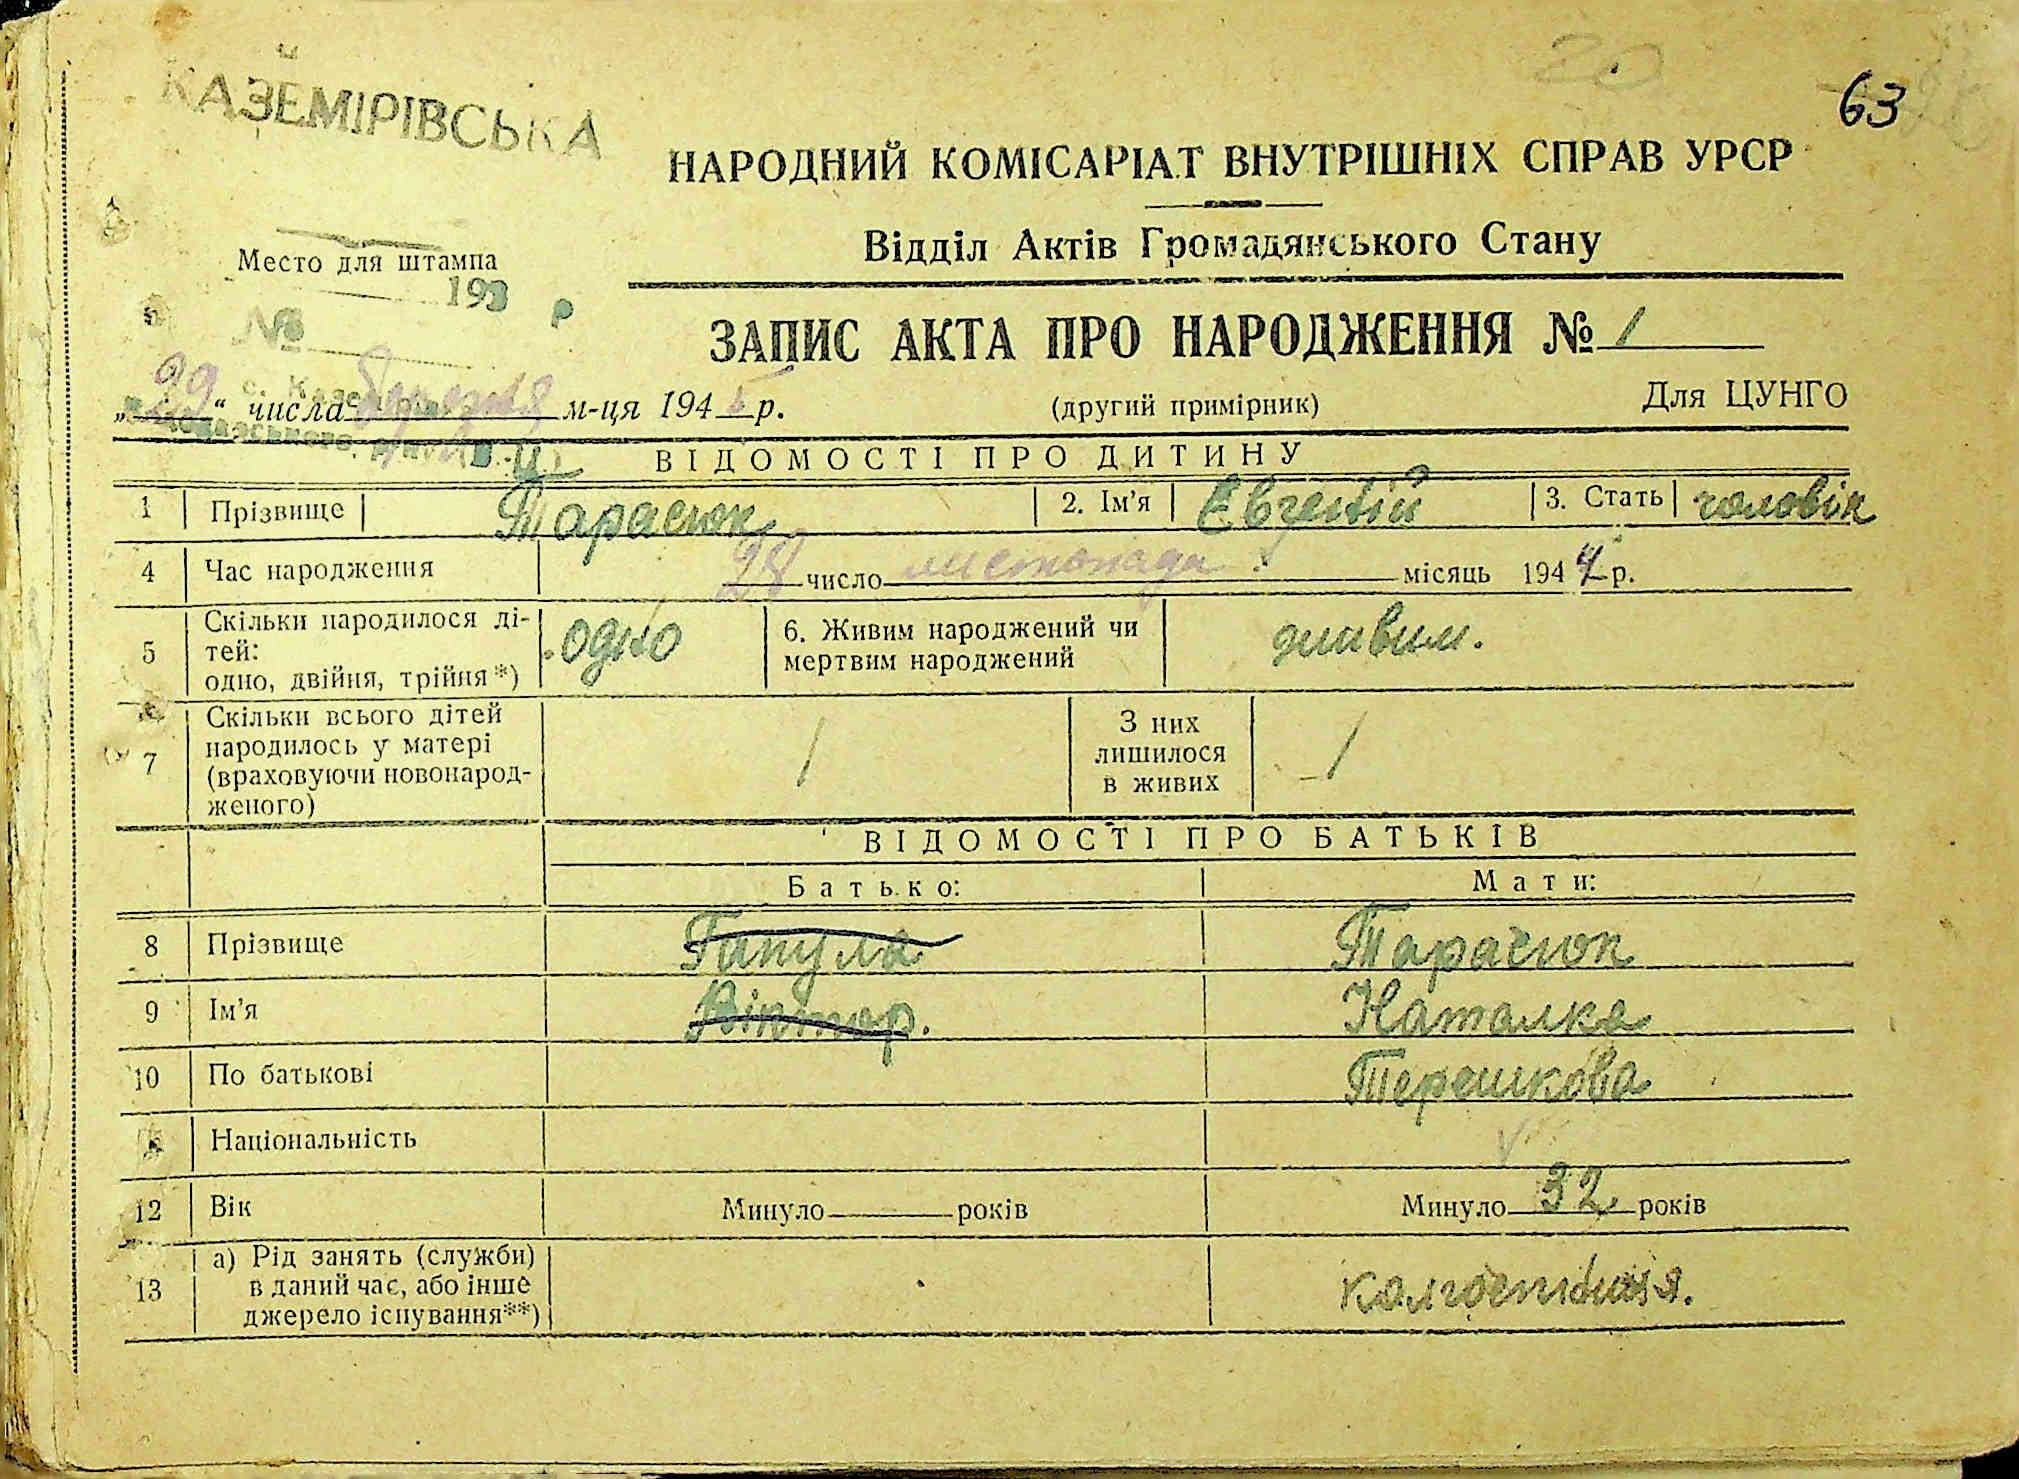 КАЗЕМІРІВСЬКА
63
20
НАРОДНИЙ КОМІСАРІАТ ВНУТРІШНІХ СПРАВ УРСР
Відділ Актів Громадянського Стану
Место для штампа
193 р
№
ЗАПИС АКТА ПРО НАРОДЖЕННЯ № 1
„29“ числа березня м-ця 1945 р.
(другий примірник)
Для ЦУНГО
ВІДОМОСТІ ПРО ДИТИНУ
1 Прізвище Тарасюк 2. Ім'я Євгений 3. Стать чоловік
4 Час народження 28 число листопада місяць 1944 р.
5 Скільки народилося ді-
тей:
одно, двійня, трійня*) одно 6. Живим народжений чи
мертвим народжений живим.
7 Скільки всього дітей
народилось у матері
(враховуючи новонарод-
женого) 1 З них
лишилося
в живих 1
ВІДОМОСТІ ПРО БАТЬКІВ
Батько: Мати:
8 Прізвище Гапула Тарасюк
9 Ім'я Віктор. Наталка
10 По батькові Терешкова
Національність
12 Вік Минуло років Минуло 32 років
13 а) Рід занять (служби)
в даний час, або інше
джерело існування**) колгоспниця.